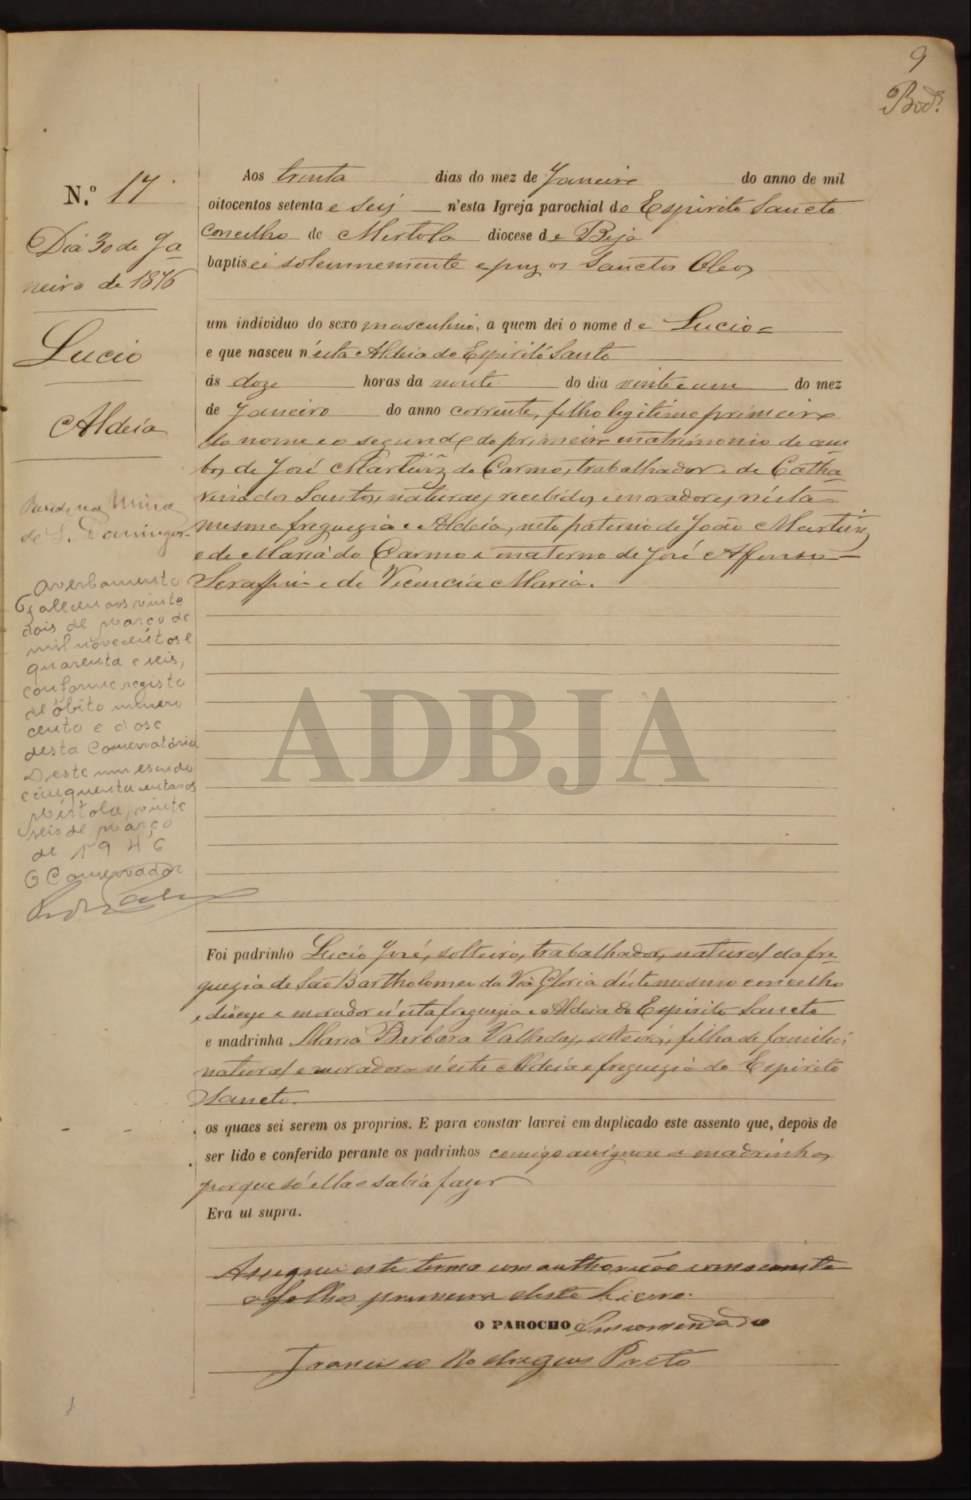 9
Rod.
N.º 17
Dia 30 de Ja
neiro de 1876
Lucio
Aldeia
na Mina
de S. Domingos
Averbamento
Faleceu aos vinte
dois de março de
mil novecentos e
quarenta e seis,
conforme registo
de óbito número
cento e dose
desta Conservatória
Deste um escudo
cinquenta centavos
Mértola, vinte
seis de março
de 1946
O Conservador
Aos trinta dias do mez de Janeiro do anno de mil
oitocentos setenta e seis n'esta Igreja parochial do Espirito Sancto
Concelho de Mertola diocese de Beja
baptisei solemnemente e puz os Sanctos Oleos
um individuo do sexo masculino, a quem dei o nome de Lucio
e que nasceu n'esta Aldeia do Espirito Santo
ás doze horas da noute do dia vinte e um do mez
de Janeiro do anno corrente, filho legitimo primeiro
do nome e o segundo do primeiro matrimonio de am
bos de José Martins do Carmo, trabalhador e de Catha
rina dos Santos, naturaes, recebidos, e moradores, n'esta
mesma freguezia e Aldeia, neto paterno de João Martins,
e de Maria do Carmo e materno de José Affonso
Seraffim e de Vicencia Maria.
ADBJA
Foi padrinho Lucio José, solteiro, trabalhador, natural da fre
guezia de São Bartholomeu da Via Gloria d'este mesmo concelho
e diocese e morador n'esta freguezia e Aldeia do Espirito Sancto
e madrinha Maria Barbara Valhadas, solteira, filha de familia,
natural e moradora n'esta Aldeia e freguezia do Espirito
Sancto.
os quaes sei serem os proprios. E para constar lavrei em duplicado este assento que, depois de
ser lido e conferido perante os padrinhos comigo assignou a madrinha,
porque só ella o sabia fazer
Era ut supra.
Assignei este termo com authorisação como consta
a folhas primeira deste Livro.
O PAROCHO Encomendado
Francisco Rodrigues Preto